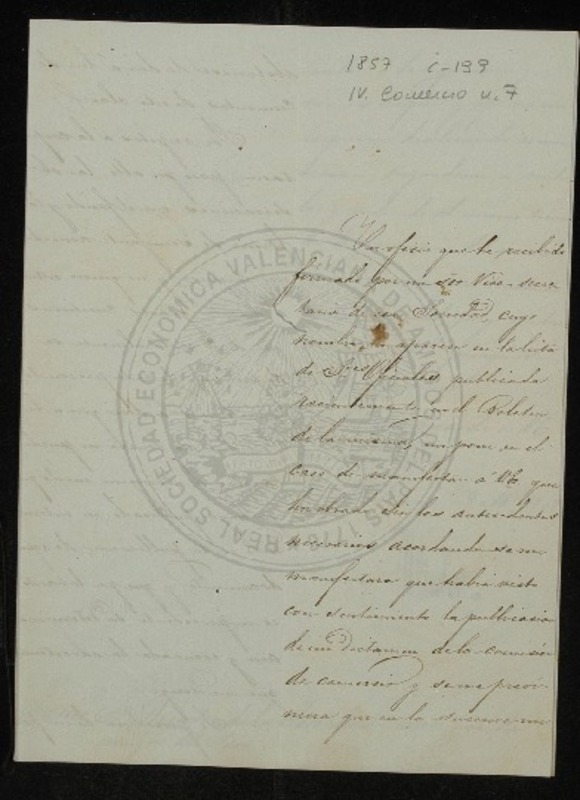 1857 C-199
IV. Comercio n. 7
REAL SOCIEDAD ECONOMICA VALENCIANA DE AMIGOS DEL PAIS 1776
Un oficio que he recibido
firmado por un Sor Vice-secre
tario de esa Sociedad, cuyo
nombre no aparece en la lista
de Sres Oficiales publicada
recientemente en el Boletin
de la misma, me pone en el
caso de manifestar á VE que
ha obrado sin los antecedentes
necesarios acordando se me
manifestara que habia visto
con sentimiento la publicacion
de un Dictamen de la comision
de comercio y se me previ-
niera que en lo sucesivo me